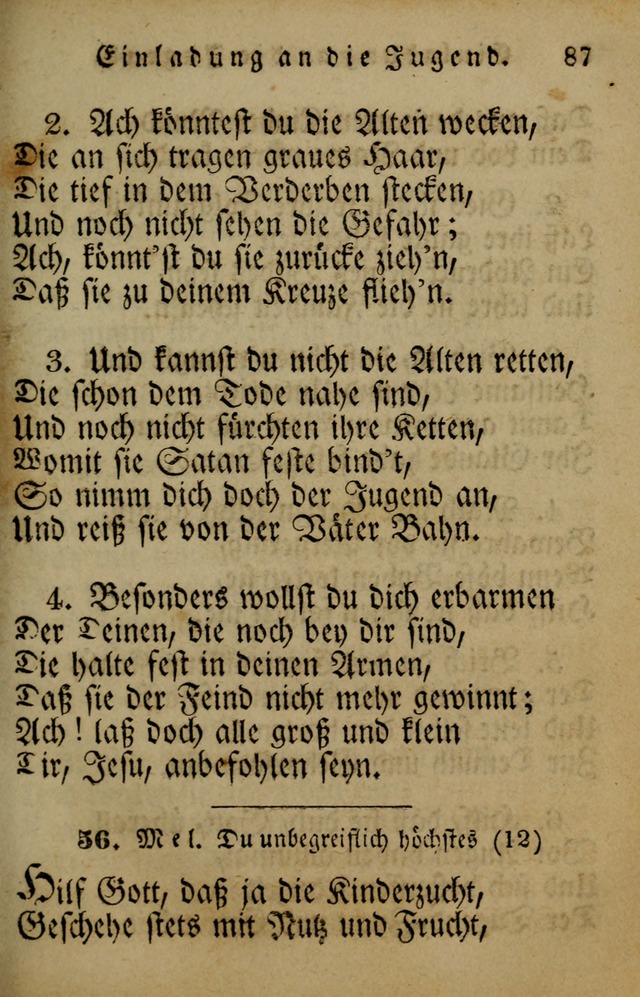 Einladung an die Jugend. 87
2. Ach könntest du die Alten wecken,
Die an sich tragen graues Haar,
Die tief in dem Verderben stecken,
Und noch nicht sehen die Gefahr;
Ach, könnt'st du sie zurücke zieh'n,
Daß sie zu deinem Kreuze flieh'n.
3. Und kannst du nicht die Alten retten,
Die schon dem Tode nahe sind,
Und noch nicht fürchten ihre Ketten,
Womit sie Satan feste bind't,
So nimm dich doch der Jugend an,
Und reiß sie von der Väter Bahn.
4. Besonders wollst du dich erbarmen
Der Deinen, die noch bey dir sind,
Die halte fest in deinen Armen,
Daß sie der Feind nicht mehr gewinnt;
Ach! laß doch alle groß und klein
Dir, Jesu, anbefohlen seyn.
56. Mel. Du unbegreiflich höchstes (12)
Hilf Gott, daß ja die Kinderzucht,
Geschehe stets mit Nutz und Frucht,